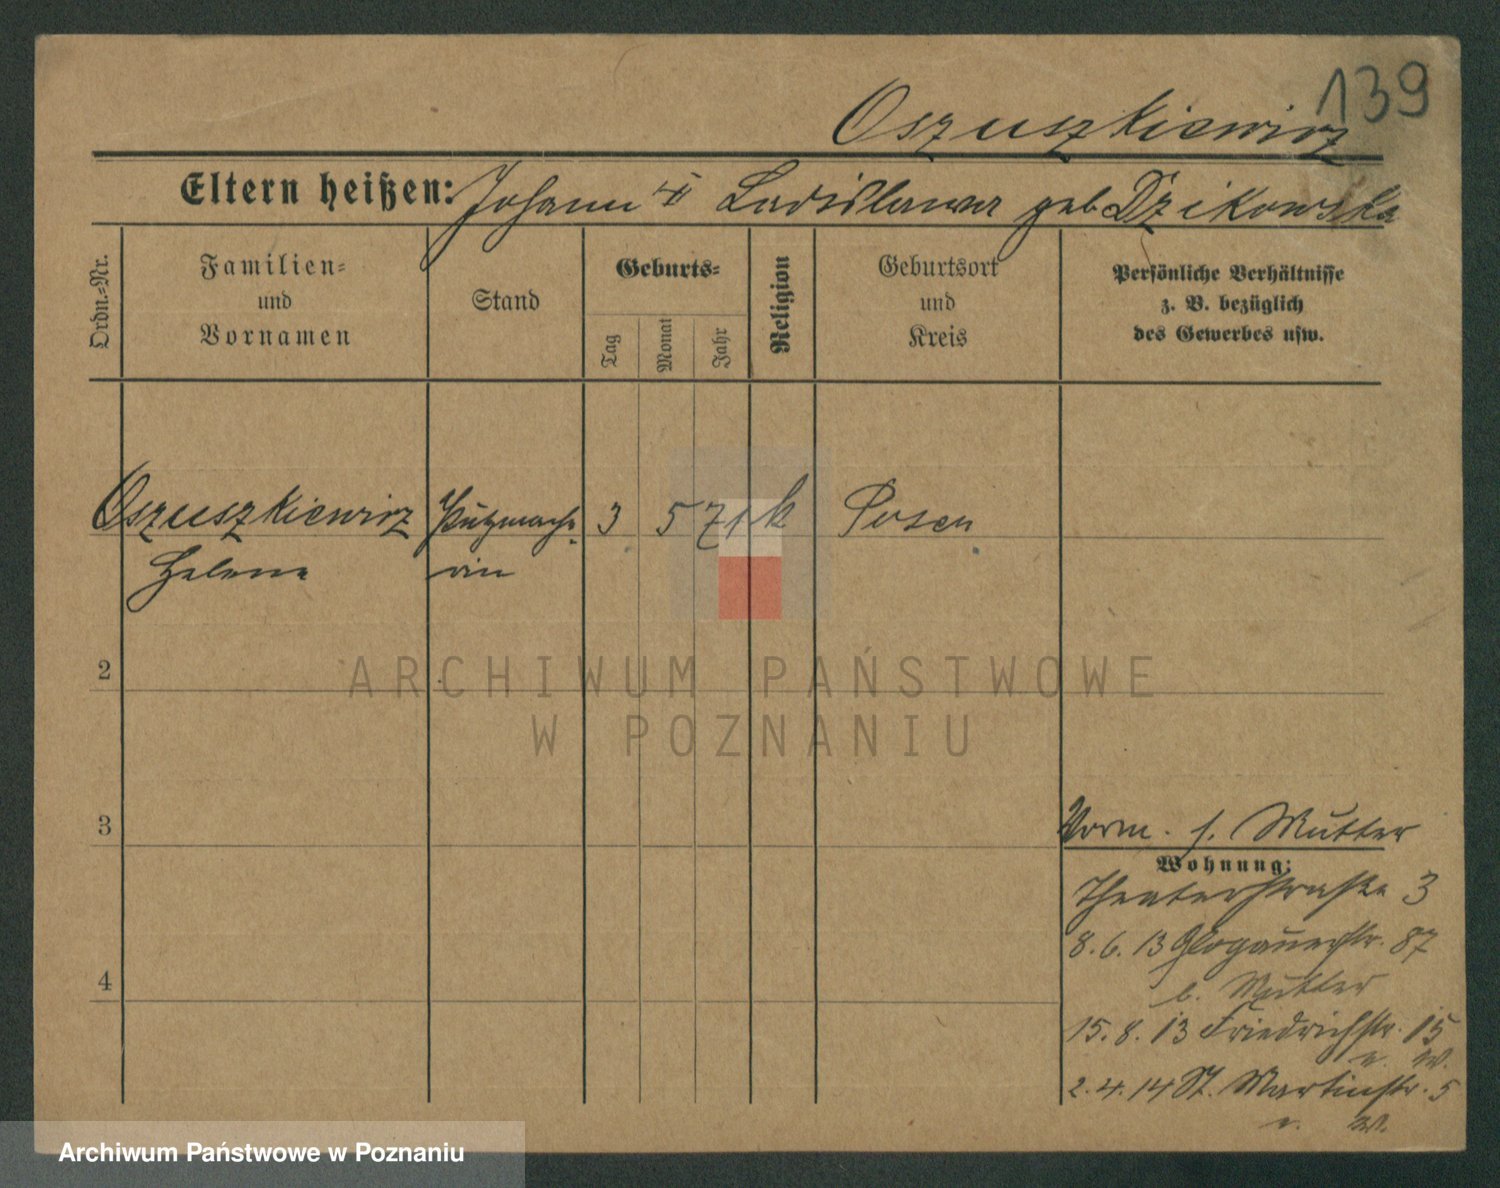 139
Oszuszkiewicz
Eltern heißen: Johann u Ladislawa geb Dzikowska
Ordn.-Nr.
Familien-
und
Vornamen
Stand
Geburts-
Tag
Monat
Jahr
Religion
Geburtsort
und
Kreis
Persönliche Verhältnisse
z. B. bezüglich
des Gewerbes usw.
Oszuszkiewicz Putzmache 3 5 71 k Posen
Helene rin
2
3
4
Vorm. s. Mutter
Wohnung:
Theaterstraße 3
8.6.13 Glogauerstr. 87
b. Mutter
15.8.13 Friedrichstr. 15
e. W.
2.4.14 St. Martinstr. 5
e. W.
ARCHIWUM PAŃSTWOWE
W POZNANIU
Archiwum Państwowe w Poznaniu